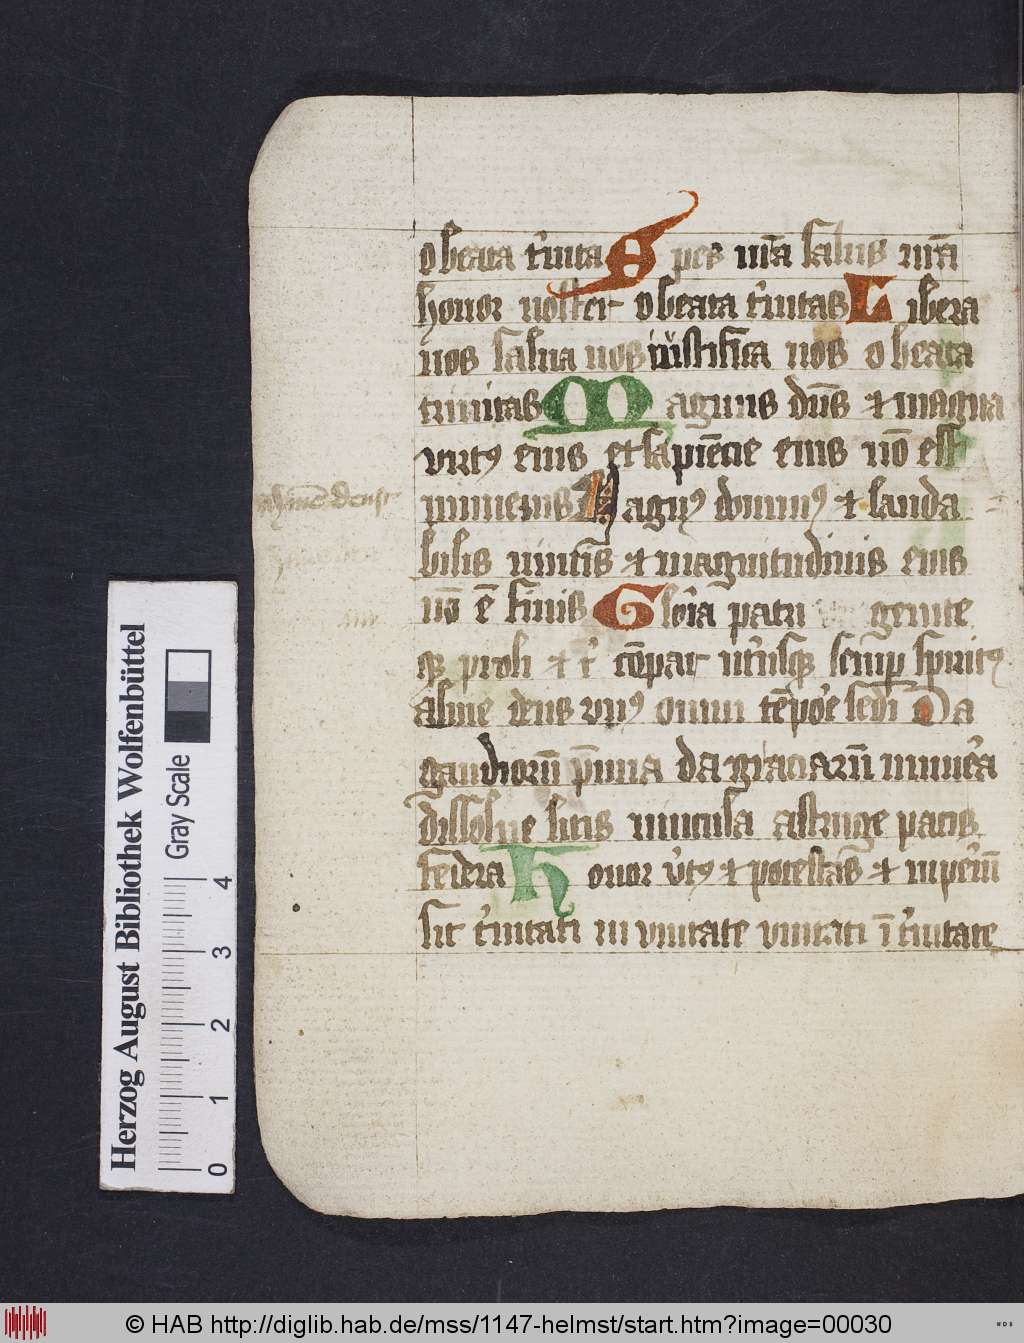 o beata t'nita Spes nr̄a salus nr̄a
honor noster o beata t'nitas Libera
nos salua nos iustifica nos o beata
trinitas Magnus dn̄s et magna
virtꝰ eius et sapiēcie eius nō est
numerus Magnꝰ dominꝰ et lauda
bilis nimis et magnitudinis eius
nō ē finis Gloria patri genite
qꝫ proli et t' cōpar ut'usqꝫ semp̲ spiritꝰ
alme deus vnꝰ omni tēpo'e secli Da
gaudiorū p̄mia da graciarū mune'a
dissolue litis vincula astringe pacis
federa Honor v'tꝰ et potestas et inpe'iū
sit t'nitati in vnitate vnitati ī t'nitate
Herzog August Bibliothek Wolfenbüttel
Gray Scale
0 1 2 3 4
© HAB http://diglib.hab.de/mss/1147-helmst/start.htm?image=00030
WDB